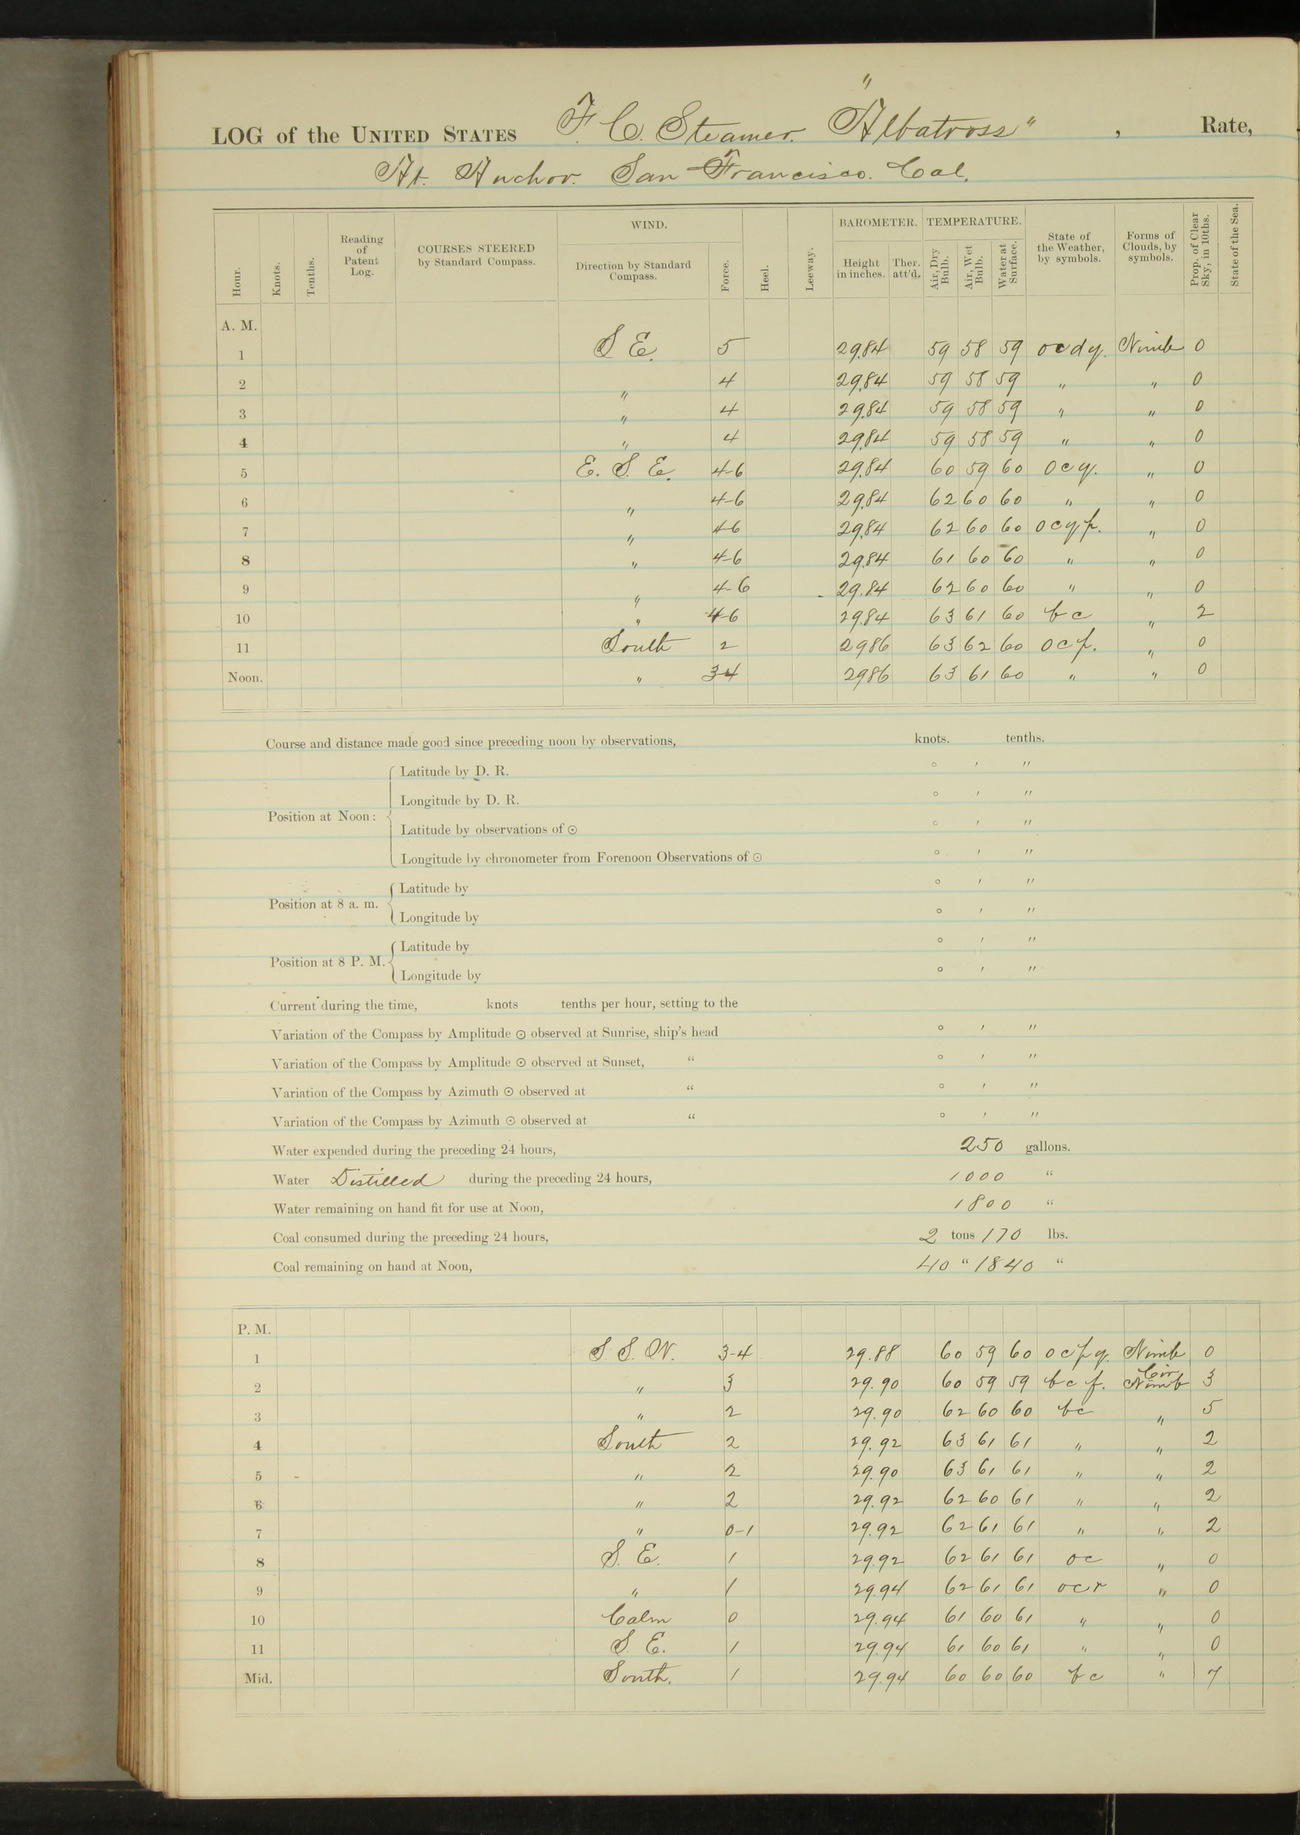 LOG of the UNITED STATES F. C. Steamer. "Albatross", Rate,
At Anchor. San Francisco. Cal.
WIND. BAROMETER. TEMPERATURE.
Hour. Knots. Tenths. Reading of Patent Log. COURSES STEERED by Standard Compass. Direction by Standard Compass. Force. Heel. Leeway. Height in inches. Ther. att'd. Air, Dry Bulb. Air, Wet Bulb. Water at Surface. State of the Weather, by symbols. Forms of Clouds, by symbols. Prop. of Clear Sky, in 10ths. State of the Sea.
A. M.
1 S E. 5 29.84 59 58 59 o c d q. Nimb 0
2 " 4 29.84 59 58 59 " " 0
3 " 4 29.84 59 58 59 " " 0
4 " 4 29.84 59 58 59 " " 0
5 E. S. E. 4-6 29.84 60 59 60 o c q. " 0
6 " 4-6 29.84 62 60 60 " " 0
7 " 4-6 29.84 62 60 60 o c q p. " 0
8 " 4-6 29.84 61 60 60 " " 0
9 " 4-6 29.84 62 60 60 " " 0
10 " 4-6 29.84 63 61 60 b c " 2
11 South 2 29 86 63 62 60 o c p. " 0
Noon. " 3-4 29 86 63 61 60 " " 0
Course and distance made good since preceding noon by observations, knots. tenths.
Position at Noon: Latitude by D. R. ° ′ ″
Longitude by D. R. ° ′ ″
Latitude by observations of ☉ ° ′ ″
Longitude by chronometer from Forenoon Observations of ☉ ° ′ ″
Position at 8 a. m. Latitude by ° ′ ″
Longitude by ° ′ ″
Position at 8 P. M. Latitude by ° ′ ″
Longitude by ° ′ ″
Current during the time, knots tenths per hour, setting to the
Variation of the Compass by Amplitude ☉ observed at Sunrise, ship's head ° ′ ″
Variation of the Compass by Amplitude ☉ observed at Sunset, " ° ′ ″
Variation of the Compass by Azimuth ☉ observed at " ° ′ ″
Variation of the Compass by Azimuth ☉ observed at " ° ′ ″
Water expended during the preceding 24 hours, 250 gallons.
Water Distilled during the preceding 24 hours, 1000 "
Water remaining on hand fit for use at Noon, 1800 "
Coal consumed during the preceding 24 hours, 2 tons 170 lbs.
Coal remaining on hand at Noon, 40 " 1840 "
P. M.
1 S. S. W. 3-4 29.88 60 59 60 o c p q. Nimb 0
2 " 3 29.90 60 59 59 b c p. Cir Nimb 3
3 " 2 29.90 62 60 60 bc " 5
4 South 2 29.92 63 61 61 " " 2
5 " 2 29.90 63 61 61 " " 2
6 " 2 29.92 62 60 61 " " 2
7 " 0-1 29.92 62 61 61 " " 2
8 S. E. 1 29.92 62 61 61 oc " 0
9 " 1 29.94 62 61 61 ocr " 0
10 Calm 0 29.94 61 60 61 " " 0
11 S. E. 1 29.94 61 60 61 " " 0
Mid. South. 1 29.94 60 60 60 b c " 7